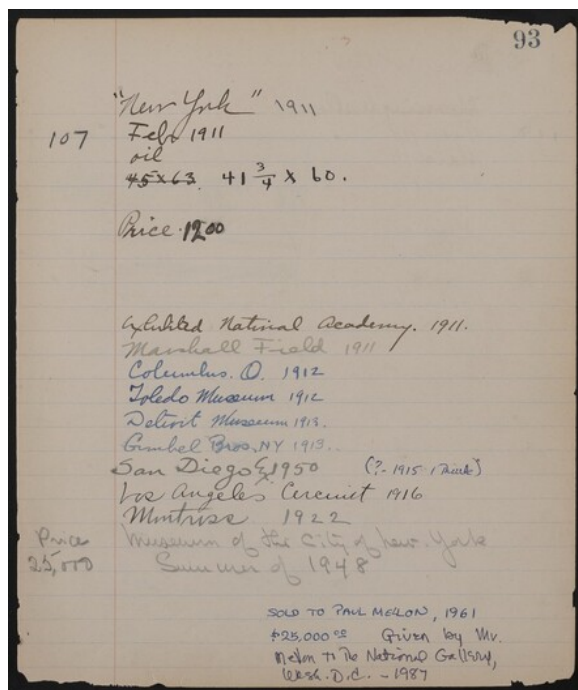 93
"New York" 1911
107 Feb, 1911
oil
45x63. 41 3/4 x 60.
Price 1200
Exhibited National Academy. 1911.
Marshall Field 1911
Columbus. O. 1912
Toledo Museum 1912
Detroit Museum 1913.
Gimbel Bros, NY 1913.
San Diego & 1950 (?- 1915 I think)
Los Angeles Circuit 1916
Montross 1922
Price Museum of the City of new. York
25,000 Summer of 1948
SOLD TO PAUL MELLON, 1961
$25,000 00 Given by Mr.
Mellon to The National Gallery,
Wash. D.C. - 1987